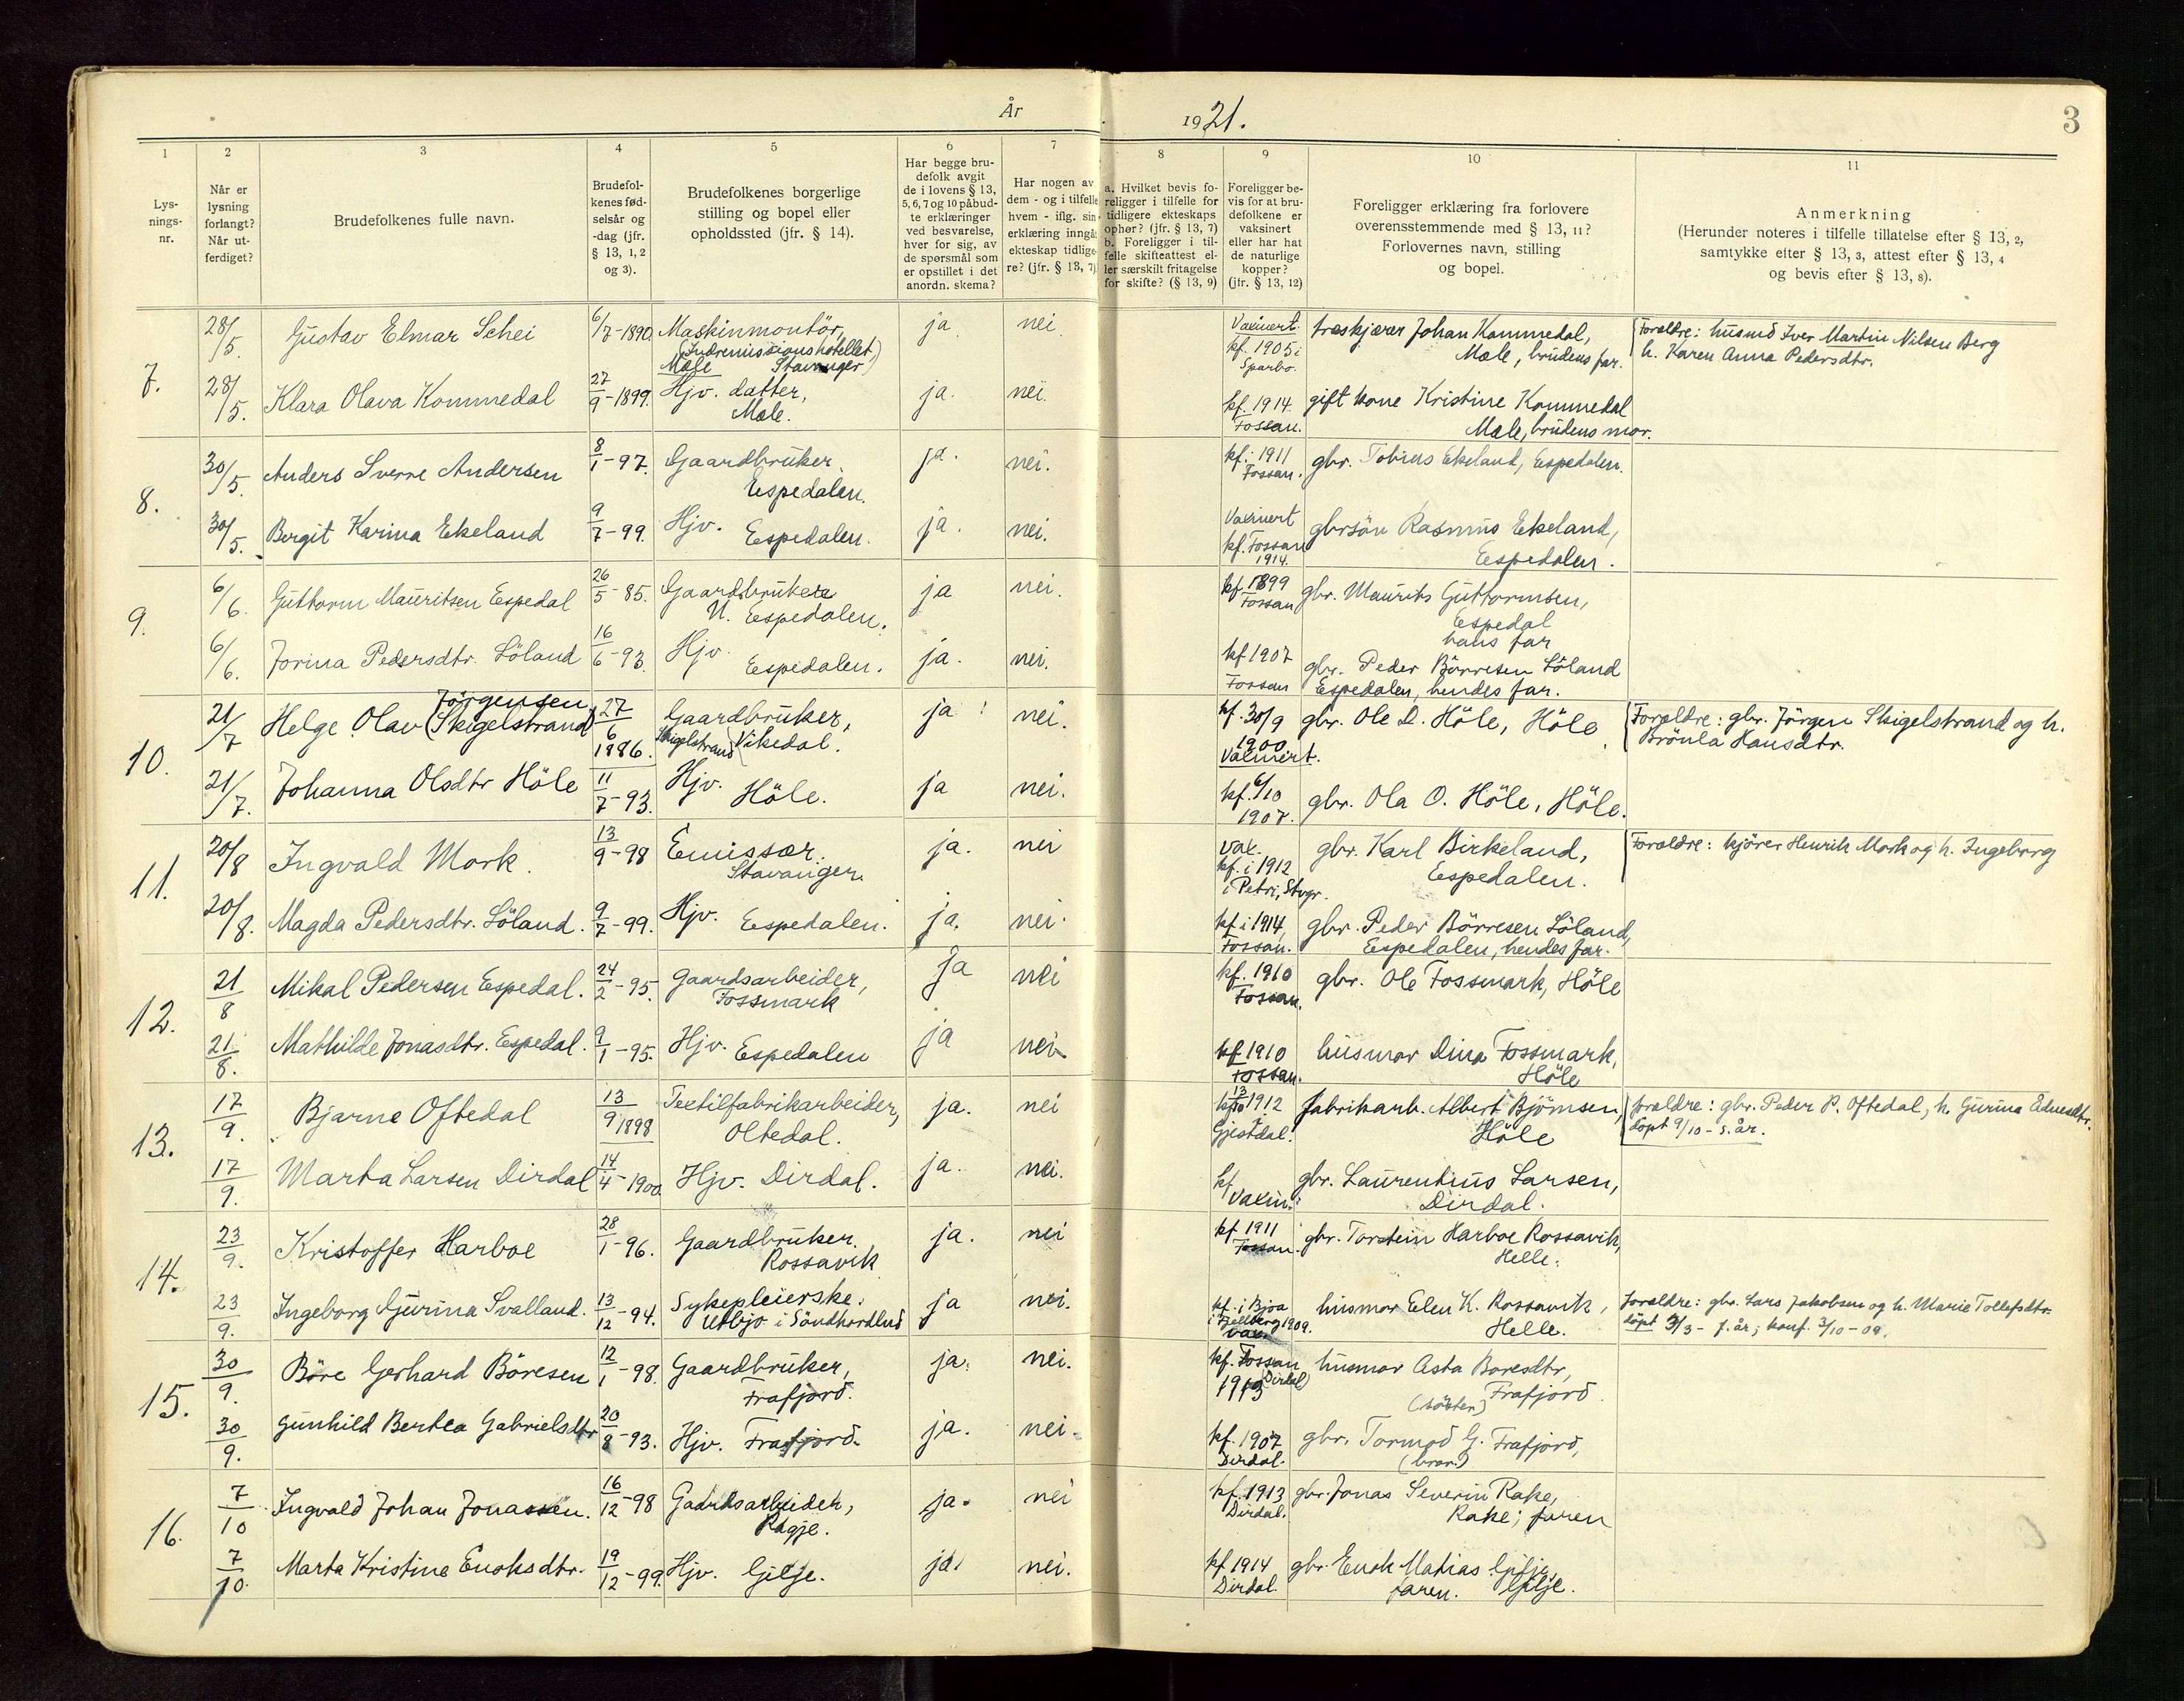 År
1921.
3
1
2
3
4
5
6
7
8
9
10
11
Lys-
nings-
nr.
Når er
lysning
forlangt?
Når ut-
ferdiget?
Brudefolkenes fulle navn.
Brudefol-
kenes fød-
selsår og
-dag (jfr.
§ 13, 1, 2
og 3).
Brudefolkenes borgerlige
stilling og bopel eller
opholdssted (jfr. § 14).
Har begge bru-
defolk avgit
de i lovens § 13,
5, 6, 7 og 10 påbud-
te erklæringer
ved besvarelse,
hver for sig, av
de spørsmål som
er opstillet i det
anordn. skema?
Har nogen av
dem - og i tilfelle
hvem - iflg. sin
erklæring inngå
ekteskap tidlige-
re? (jfr. § 13, 7)
a. Hvilket bevis fo-
religger i tilfelle for
tidligere ekteskaps
ophør? (jfr. § 13, 7)
b. Foreligger i til-
felle skifteattest el-
ler særskilt fritagelse
for skifte? (§ 13, 9)
Foreligger be-
vis for at bru-
defolkene er
vaksinert
eller har hat
de naturlige
kopper?
(jfr. § 13, 12)
Foreligger erklæring fra forlovere
overensstemmende med § 13, 11?
Forlovernes navn, stilling
og bopel.
Anmerkning
(Herunder noteres i tilfelle tillatelse efter § 13, 2,
samtykke efter § 13, 3, attest efter § 13, 4
og bevis efter § 13, 8).
7.
28/5. Gustav Elmar Schei 6/7-1890. Maskinmontör, ja. nei. Vaxinert. træskjærer Johan Kommedal, Foreldre: husmd Iver Martin Nilsen Berg
(Indremissionshotellet, kf. 1905 i Mæle, brudens far. h. Karen Anna Pedersdtr.
Mæle Stavanger) Sparbo.
28/5. Klara Olava Kommedal 27/9-1899. Hjv. datter, ja. nei. kf. 1914. gift kone Kristine Kommedal
Mæle. Fossan. Mæle, brudens mor.
8.
30/5. Anders Sverre Andersen 8/1-97. Gaardbruker. ja. nei. kf. i 1911 gbr. Tobias Ekeland, Espedalen.
Espedalen. Fossan.
30/5. Bergit Karina Ekeland 9/7-99. Hjv. Espedalen. ja. nei. Vaxinert gbrsön Rasmus Ekeland,
kf. Fossan Espedalen.
1914.
9.
6/6. Guttorm Mauritsen Espedal 26/5-85. Gaardbruker ja nei. kf. 1899 gbr. Maurits Guttormsen,
N. Espedalen. Fossan Espedal
hans far
6/6. Jorina Pedersdtr. Löland 16/6-93. Hjv. Espedalen. ja. nei. kf 1907 gbr. Peder Börresen Löland
Fossan Espedalen, hendes far.
10.
21/7 Helge Olav Jörgensen (Skigelstrand) 27/6 1886. Gaardbruker, ja nei. kf. 30/9 gbr. Ole D. Höle, Höle Foreldre: gbr. Jörgen Skigelstrand og h.
Skigelstrand Vikedal. 1900 Brönla Hansdtr.
Vaxinert.
21/7. Johanna Olsdtr Höle 11/7-93. Hjv. Höle. ja nei. kf. 6/10 gbr. Ola O. Höle, Höle.
1907.
11.
20/8 Ingvald Mork. 13/9-98 Emissær. ja. nei vax. gbr. Karl Birkeland, Foreldre: kjörer Henrik Mork og h. Ingeborg
Stavanger. kf. i 1912 Espedalen.
i Petri, Stvgr.
20/8. Magda Pedersdtr. Löland. 9/7-99. Hjv. Espedalen. ja. nei. kf i 1914, gbr. Peder Börresen Löland,
Fossan. Espedalen, hendes far.
12.
21/8 Mikal Pedersen Espedal. 24/2-95. Gaardsarbeider, ja nei kf. 1910 gbr. Ole Fossmark, Höle
Fossmark Fossan.
21/8. Mathilde Jonasdtr. Espedal. 9/1-95. Hjv. Espedalen ja nei kf 1910 husmor Dina Fossmark,
Fossan. Höle
13.
17/9. Bjarne Oftedal 13/9 1898 Textilfabrikarbeider, ja. nei kf 13/10 1912 fabrikarb. Albert Björnsen, foreldre: gbr. Peder P. Oftedal, h. Gurina
Oltedal. Gjestdal. Höle döpt 9/10 - s. år.
17/9. Marta Larsen Dirdal 14/4-1900. Hjv. Dirdal. ja. nei. kf gbr. Laurentius Larsen,
Vaxin. Dirdal.
14.
23/9. Kristoffer Harboe 28/1-96. Gaardbruker. ja. nei kf 1911 gbr. Torstein Harboe Rossavik,
Rossavik Fossan. Helle.
23/9. Ingeborg Gurina Svalland. 13/12-94. Sykepleierske. ja nei. kf. i Bjoa husmor Elen K. Rossavik, foreldre: gbr. Lars Jakobsen og h. Marie Tollefsdtr.
Utbjo i Söndhordland i Fjelberg 1909. Helle. döpt 3/3 - f. år; konf. 3/10-09.
vax.
15.
30/9. Böre Gerhard Böresen 12/1-98. Gaardbruker, ja. nei. kf. Fossan husmor Asta Boresdtr,
Frafjord. (Dirdal) 1913 (söster) Frafjord.
30/9. Gunhild Bertea Gabrielsdtr 20/8-93. Hjv. Frafjord. ja. nei. kf. 1907 gbr. Tormod G. Frafjord,
Dirdal. (bror)
16.
7/10 Ingvald Johan Jonassen. 16/12-98 Gaardsarbeider, ja. nei kf. 1913 gbr. Jonas Severin Rake,
Dirdal. Rake; faren
7/10. Marta Kristine Enoksdtr. 19/12-99. Hjv. Gilje. ja. nei. kf 1914 gbr. Enok Matias Gilje,
Dirdal. faren. Gilje.